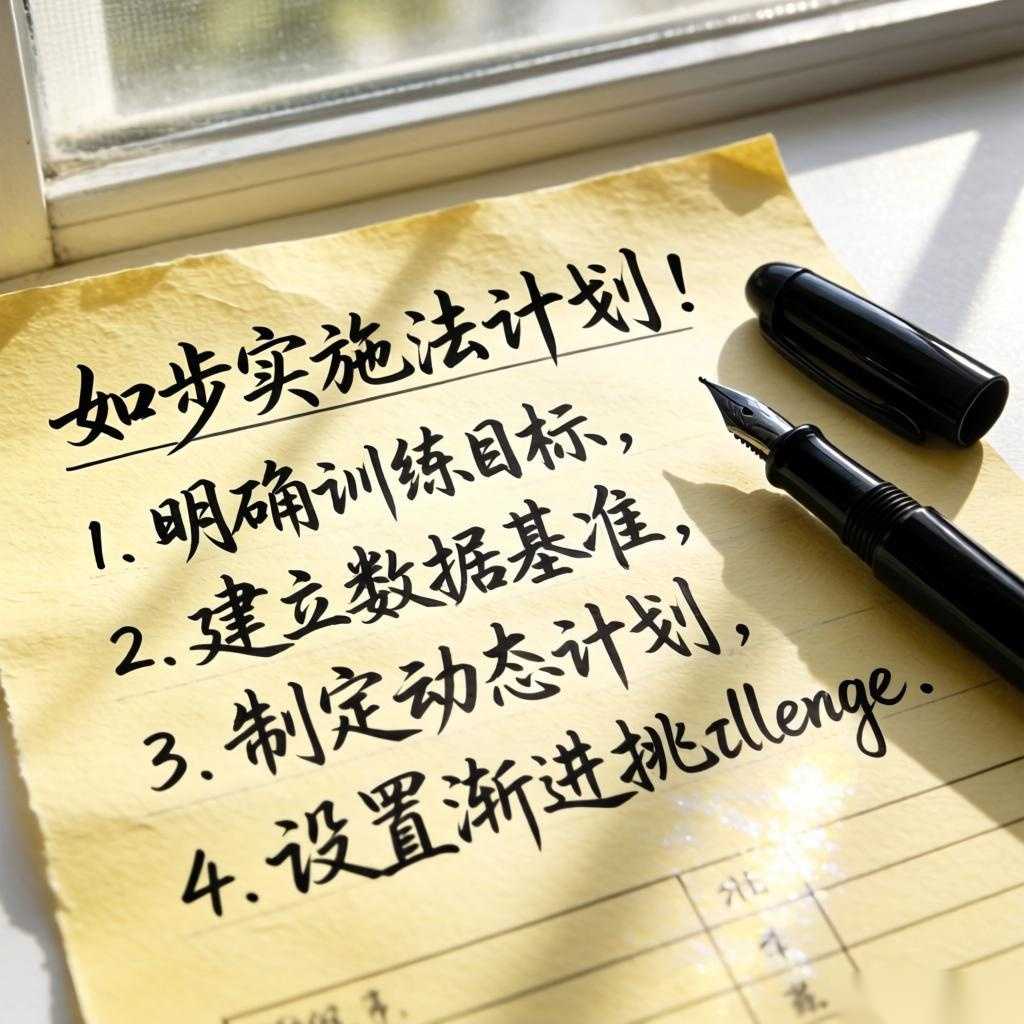 如步实施法计划！
1. 明确训练目标，
2. 建立数据基准，
3. 制定动态计划，
4. 设置渐进挑cllenge.